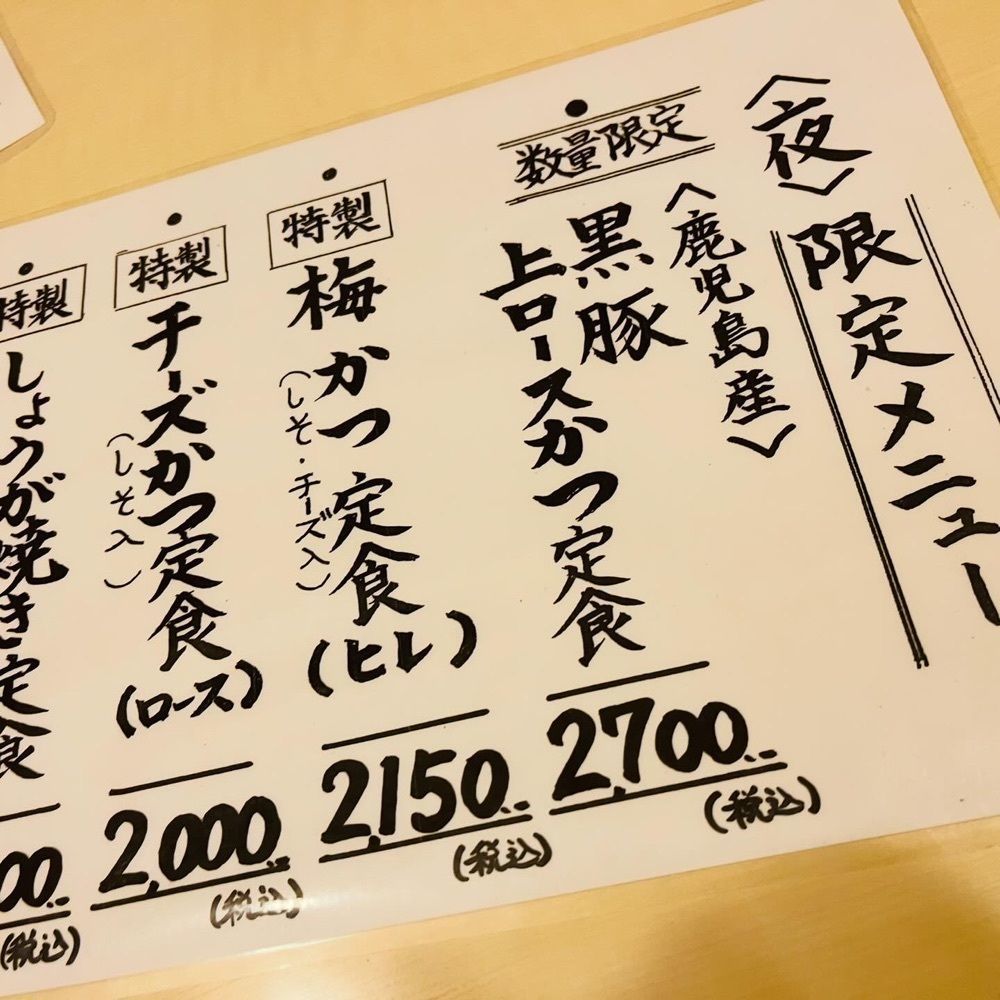 〈夜〉限定メニュー
数量限定
〈鹿児島産〉
黒豚
上ロースかつ定食
2,700
(税込)
特製
梅かつ定食(ヒレ)
(しそ・チーズ入)
2,150
(税込)
特製
チーズかつ定食(ロース)
(しそ入)
2,000
(税込)
特製
しょうが焼き定食
00
(税込)